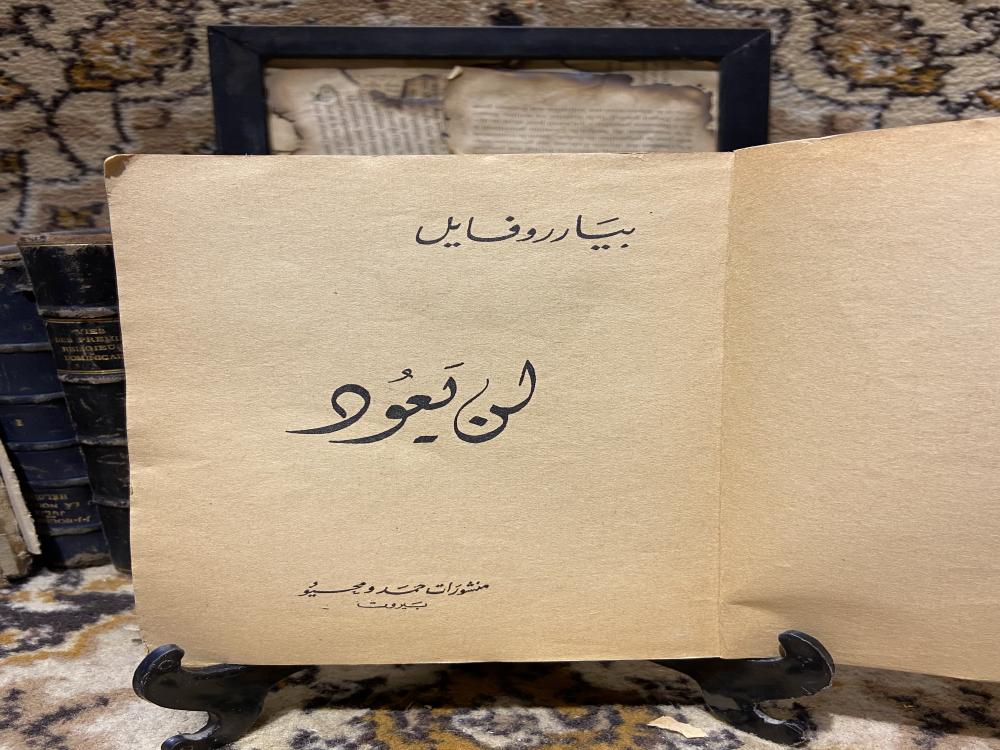 بيَار روفايل
لن يَعُود
منشورات حمَد ومحيو
بَيروت
VIES
DES PREMI
RELIGIEU
DOMINICAI